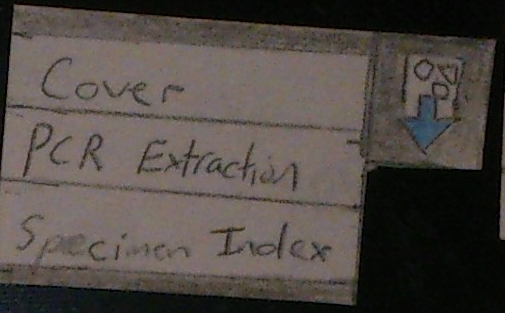 Cover
PCR Extraction
Specimen Index